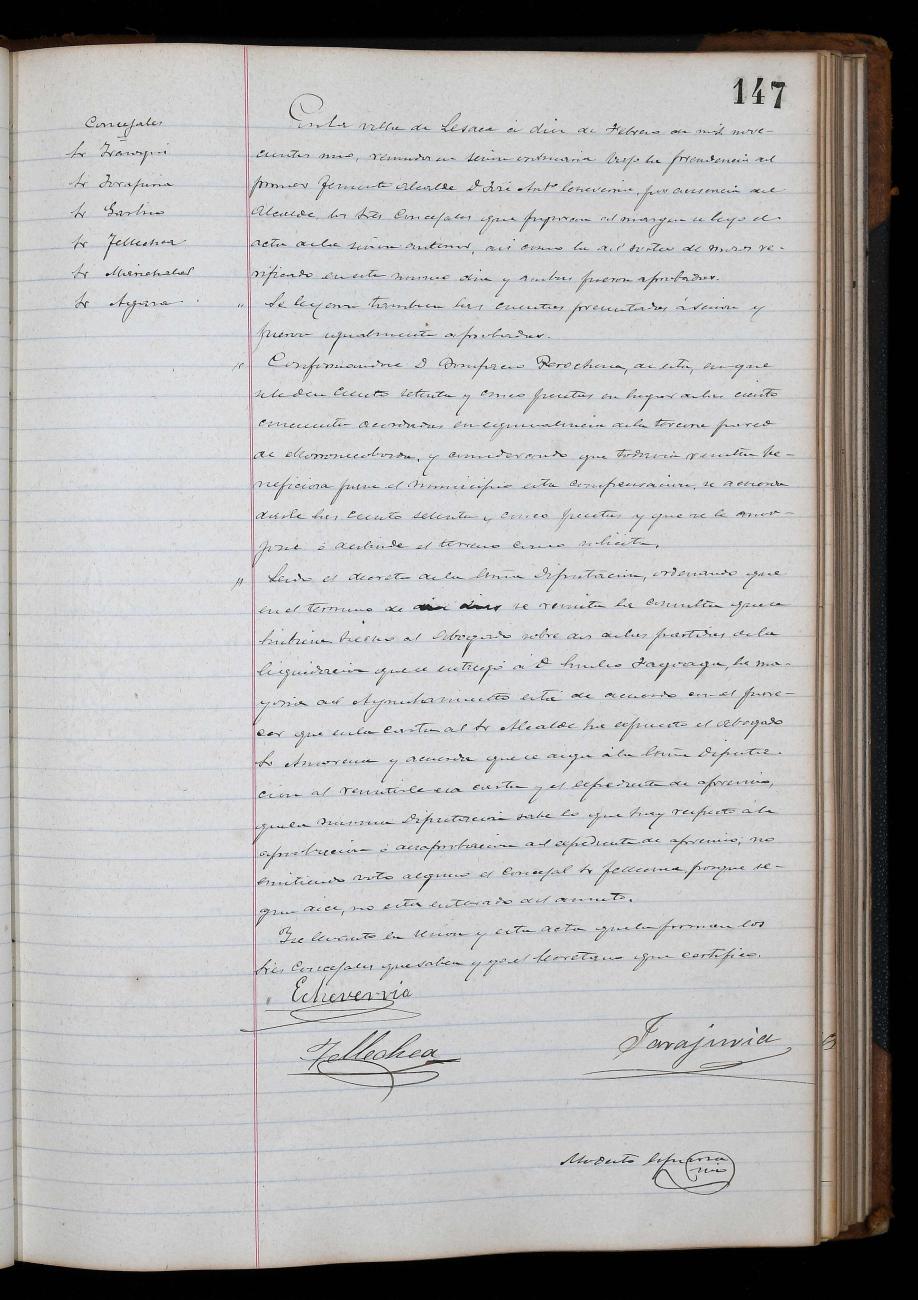 147
Concejales
Sr Iránzqui
Sr Tarajuria
Sr Gastria
Sr Tellechea
Sr Marichalar
Sr Apeza
En la villa de Lesaca á diez de Febrero de mil nove-
cientos uno, reunidos en sesion ordinaria bajo la presidencia del
primer Teniente Alcalde D José Antº Echeverria, por ausencia del
Alcalde, los Sres Concejales que figuran al margen se leyó el
acta de la sesion anterior, asi como la del sorteo de mozos ve-
rificado en este mismo dia y ambas fueron aprobadas.
" Se leyeron tambien las cuentas presentadas á sesion y
fueron igualmente aprobadas.
" Conformandose D Bonifacio Perochena, de esta, en que
se le den ciento setenta y cinco pesetas en lugar de las ciento
cincuenta acordadas en equivalencia de la tercera pared
de, y considerando que todavia resulta be-
neficiosa para el municipio esta compensacion, se acuerda
darle las ciento setenta y cinco pesetas y que se le amo-
jone ó deslinde el terreno como solicita.
" Leido el decreto de la Excma Diputacion, ordenando que
en el termino de diez dias se remita la consulta que se
hubiese hecho al Abogado sobre dos de las partidas de la
liquidacion que se entregó á D Emilio Jaguaga, la ma-
yoria del Ayuntamiento está de acuerdo con el pare-
cer que en la carta al Sr Alcalde ha expuesto el Abogado
Sr Amorena y acuerda que se diga á la Excma Diputa-
cion al remitirle esa carta y el expediente de apremio,
que la misma Diputacion sabe lo que hay respecto á la
aprobacion ó desaprobacion del expediente de apremio; no
emitiendo voto alguno el Concejal Sr Tellechea porque se-
gun dice, no está enterado del asunto.
Y se levanto la sesion y esta acta que la firman los
Sres Concejales que saben y yo el Secretario que certifico.
Echeverria
Tellechea
Tarajuria
Modesto